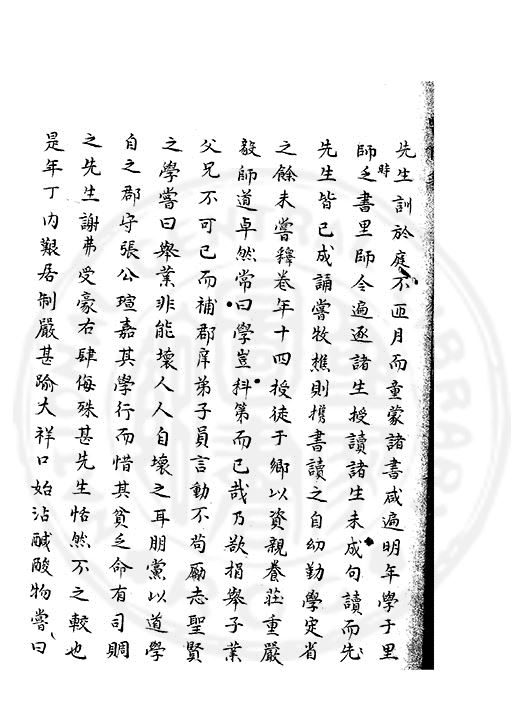 先生訓於庭不匝月而童蒙諸書咸遍明年學于里
師時乏書里師令遍逐諸生授讀諸生未成句讀而先
先生皆已成誦嘗牧樵則攜書讀之自幼勤學定省
之餘未嘗釋卷年十四授徒于鄉以資親養莊重嚴
毅師道卓然常曰學豈科第而已哉乃欲捐舉子業
父兄不可已而補郡庠弟子員言動不苟勵志聖賢
之學嘗曰舉業非能壞人人自壞之耳朋黨以道學
自之郡守張公瑄嘉其學行而惜其貧乏命有司賙
之先生謝弗受豪右肆侮殊甚先生恬然不之較也
是年丁內艱居制嚴甚踰大祥口始沾鹹酸物嘗曰